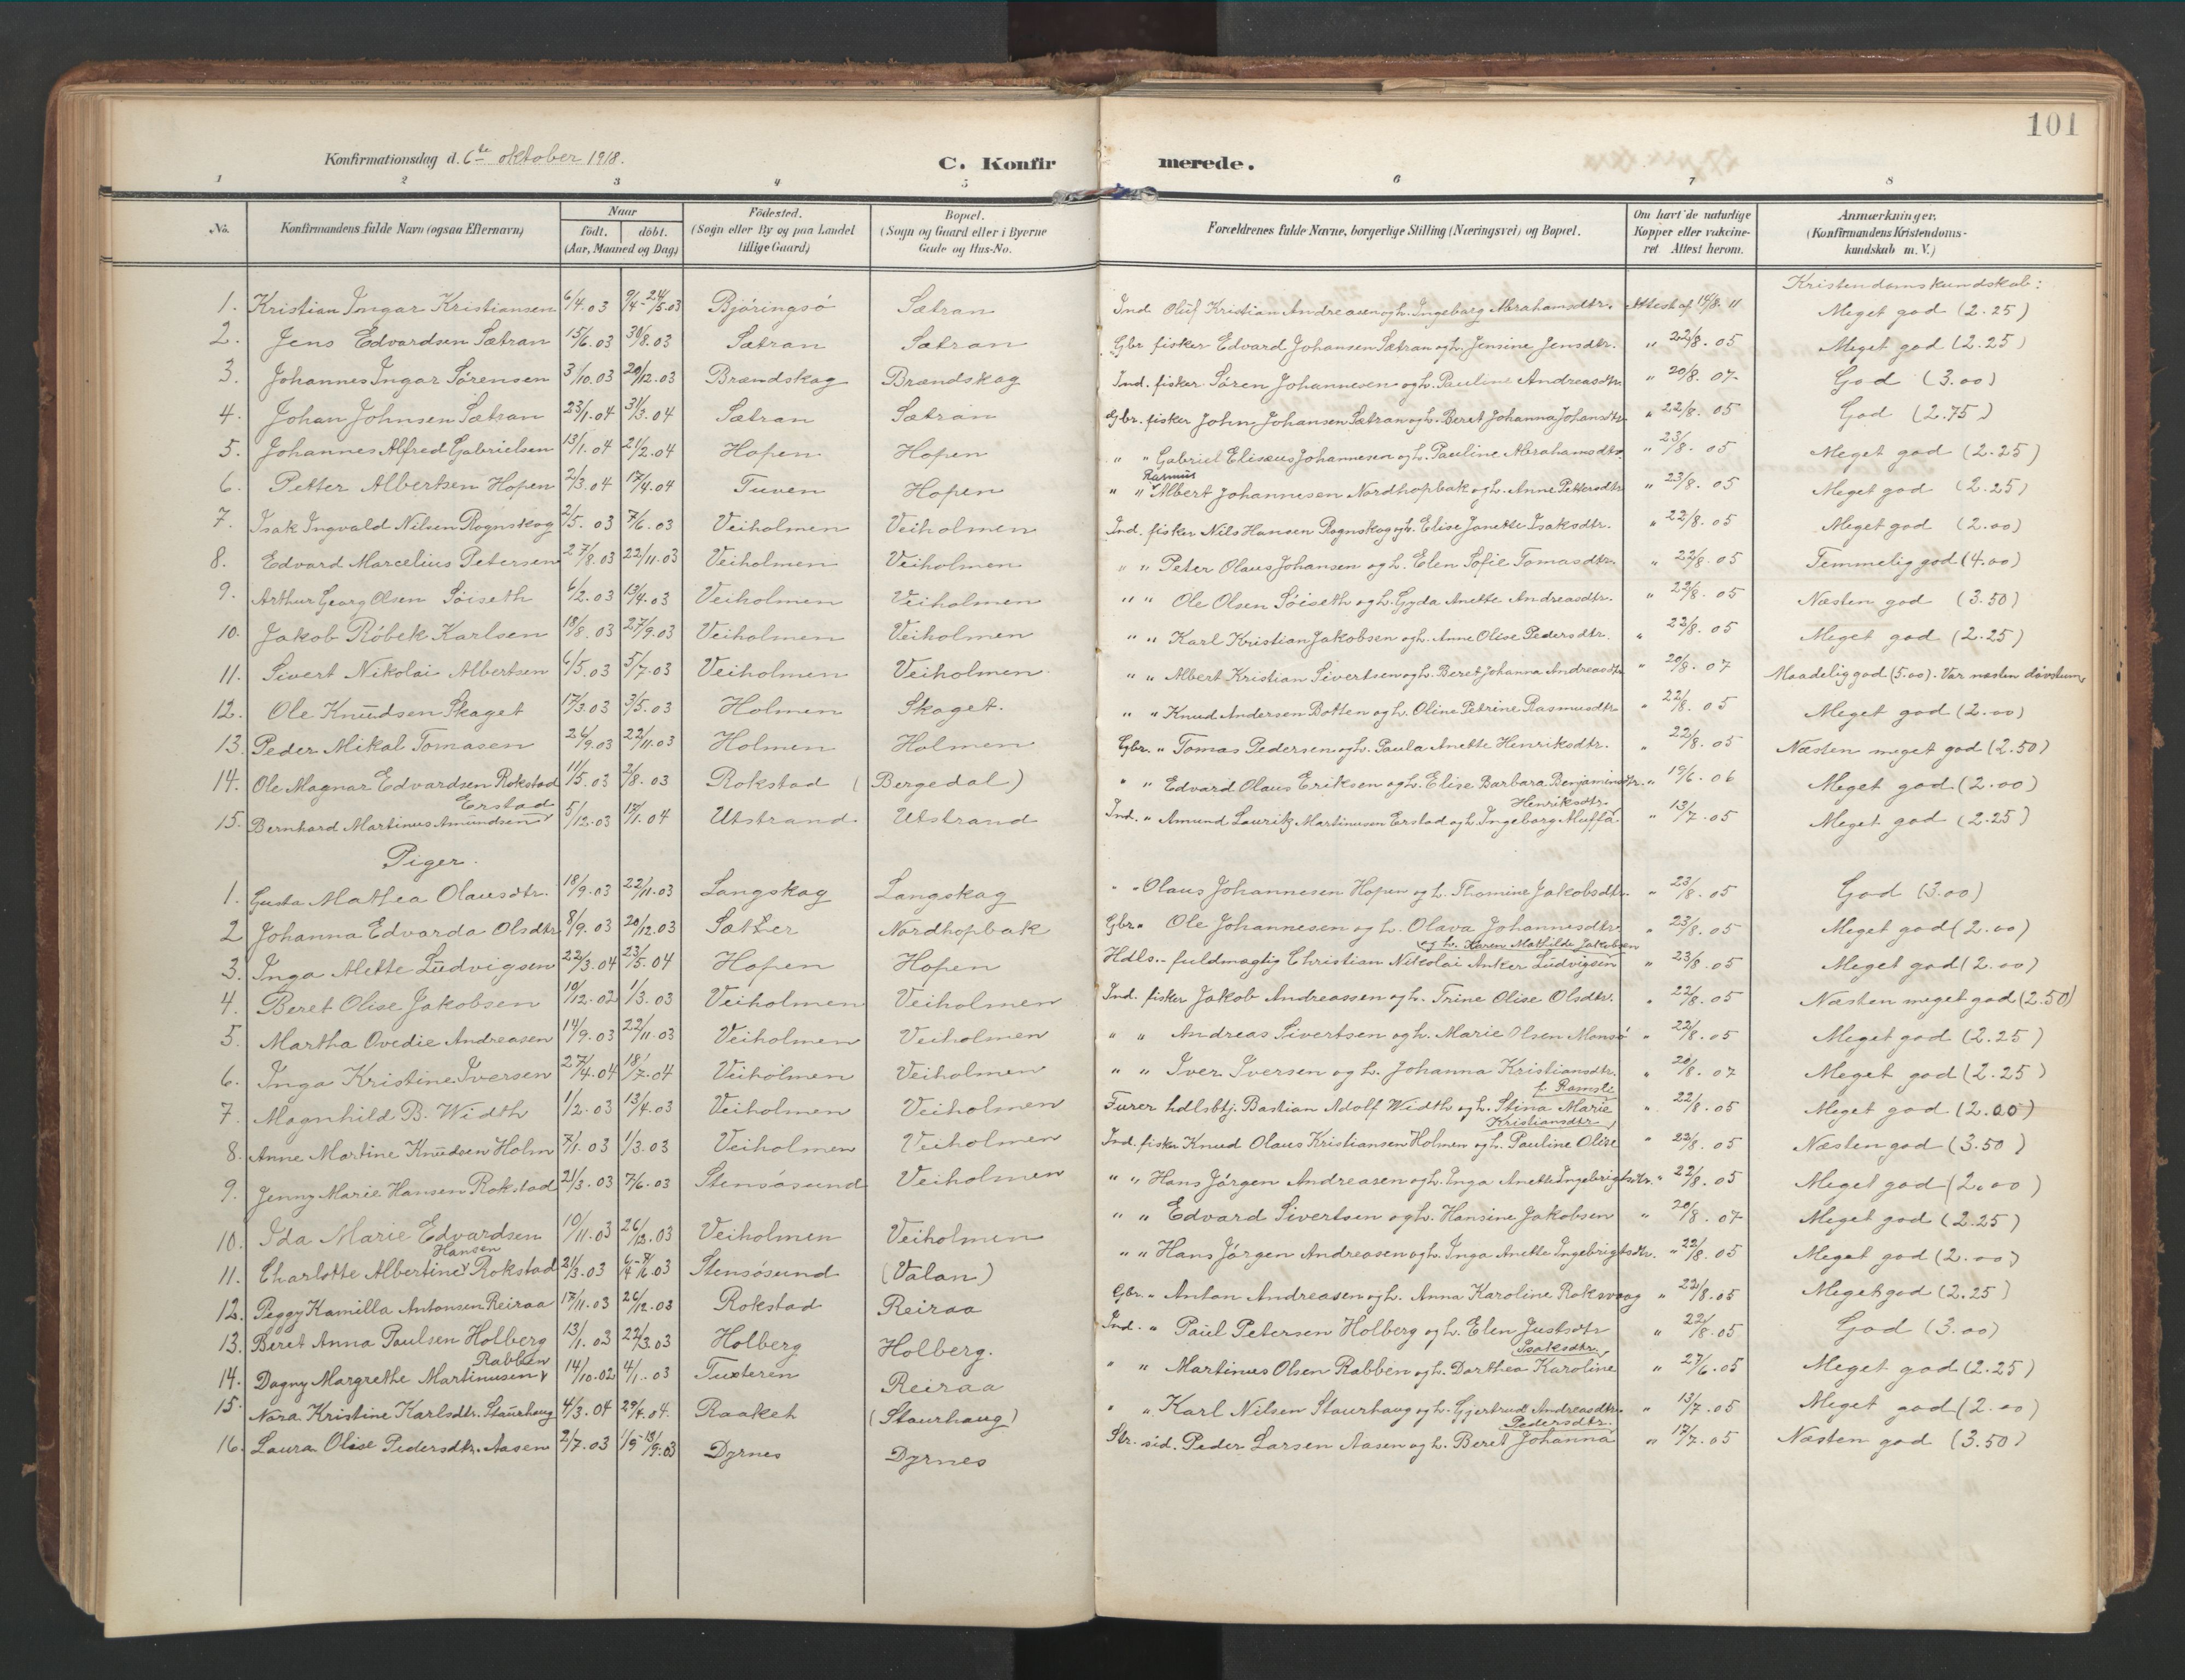 101
Konfirmationsdag d. 6te oktober 1918. C. Konfirmerede.
1 2 3 4 5 6 7 8
No. Konfirmandens fulde Navn (ogsaa Efternavn) Naar födt. döbt. (Aar, Maaned og Dag) Födested. (Sogn eller By og paa Landet tillige Gaard) Bopæl. (Sogn og Gaard eller i Byerne Gade og Hus-No. Forældrenes fulde Navne, borgerlige Stilling (Næringsvei) og Bopæl. Om havt de naturlige Kopper eller vakcineret Attest herom. Anmærkninger. (Konfirmandens Kristendomskundskab m. V.)
Kristendomskundskab:
1. Kristian Ingar Kristiansen 6/4.03 9/4-24/5.03 Björingsö Sætran Ind. Oluf Kristian Andreasen og h. Ingeborg Abrahamsdtr. Attest af 14/8. 11 Meget god (2.25)
2. Jens Edvardsen Sætran 15/6.03 30/8.03 Sætran Sætran Gbr. fisker Edvard Johansen Sætran og h. Jensine Jensdtr. " 22/8. 05 Meget god (2.25)
3. Johannes Ingar Sörensen 3/10.03 20/12.03 Brændskag Brændskag Ind. fisker Sören Johannesen og h. Pauline Andreasdtr " 20/8. 07 God (3.00)
4. Johan Johnsen Sætran 23/1.04 31/3.04 Sætran Sætran Gbr. fisker John Johansen Sætran og h. Beret Johanna Johansdtr " 22/8. 05 God (2.75)
5. Johannes Alfred Gabrielsen 13/1.04 21/2.04 Hopen Hopen " " Gabriel Eliseus Johannesen og h. Pauline Abrahamsdtr. " 23/8. 05 Meget god (2.25)
6. Petter Albertsen Hopen 2/3.04 17/4.04 Tuven Hopen " " Rasmus Albert Johannesen Nordhopbak og h. Anne Pettersdtr " 23/8. 05 Meget god (2.25)
7. Isak Ingvald Nilsen Rognskog 2/5. 03 7/6.03 Veiholmen Veiholmen Ind. fisker Nils Hansen Rognskog og h. Elise Janette Isaksdtr. " 22/8. 05 Meget god (2.00)
8. Edvard Marcelius Petersen 27/8.03 22/11.03 Veiholmen Veiholmen " " Peter Olaus Johansen og h. Elen Sofie Tomasdtr. " 22/8. 05 Temmelig god (4.00)
9. Arthur Georg Olsen Söiseth 6/2.03 13/4.03 Veiholmen Veiholmen " " Ole Olsen Söiseth og h. Gyda Anette Andreasdtr. " 22/8. 05 Næsten god (3.50)
10. Jakob Röbek Karlsen 18/8.03 27/9.03 Veiholmen Veiholmen " " Karl Kristian Jakobsen og h. Anne Olise Pedersdtr. " 22/8. 05 Meget god (2.25)
11. Sivert Nikolai Albertsen 6/5.03 5/7.03 Veiholmen Veiholmen " " Albert Kristian Sivertsen og h. Beret Johanna Andreasdtr " 20/8. 07 Maadelig god (5.00). Var næsten dövstum.
12. Ole Knudsen Skaget 17/3.03 3/5.03 Holmen Skaget. " " Knud Andersen Botten og h. Oline Petrine Rasmusdtr " 22/8. 05 Meget god (2.00)
13. Peder Mikal Tomasen 26/9.03 22/11.03 Holmen Holmen Gbr. " Tomas Pedersen og h. Paula Anette Henriksdtr. " 22/8. 05 Næsten meget god (2.50)
14. Ole Magnar Edvardsen Rokstad 11/5.03 2/8.03 Rokstad (Bergedal) " " Edvard Olaus Eriksen og h. Elise Barbara Benjaminsdtr. " 19/6. 06 Meget god (2.00)
15. Bernhard Martinus Amundsen Erstad 5/12.03 17/1.04 Utstrand Utstrand Ind. " Amund Lauritz Martinusen Erstad og h. Ingeborg Muffa Henriksdtr. " 13/7. 05 Meget god (2.25)
Piger.
1. Gusta Mathea Olausdtr. 18/9.03 22/11.03 Langskag Langskag " " Olaus Johannesen Hopen og h. Thomine Jakobsdtr. " 23/8. 05 God (3.00)
2 Johanna Edvarda Olsdtr 8/9.03 20/12.03 Sætter Nordhopbak Gbr. " Ole Johannesen og h. Olava Johannesdtr. " 23/8. 05 Meget god (2.00)
3. Inga Alette Ludvigsen 22/3.04 23/5.04 Hopen Hopen Hdls.-fuldmægtig Christian Nikolai Anker Ludvigsen og h. Karen Mathilde Jakobsen " 23/8. 05 Meget god (2.00)
4 Beret Olise Jakobsen 19/12.02 1/3.03 Veiholmen Veiholmen Ind. fisker Jakob Andreassen og h. Trine Olise Olsdtr. " 22/8. 05 Næsten meget god (2.50)
5. Martha Ovedie Andreasen 14/9.03 22/11.03 Veiholmen Veiholmen " " Andreas Sivertsen og h. Marie Olsen Monsö " 22/8. 05 Meget god (2.25)
6. Inga Kristine Iversen 27/4.04 18/7.04 Veiholmen Veiholmen " " Iver Iversen og h. Johanna Kristiansdtr. " 20/8. 07 Meget god (2.25)
7. Magnhild B. Width 1/2.03 13/4.03 Veiholmen Veiholmen Furer hdlsbtj. Bastian Adolf Width og h. Stina Marie f. Ramsli " 22/8. 05 Meget god (2.00)
8. Anne Martine Knudsen Holm 7/1.03 1/3.03 Veiholmen Veiholmen Ind. fisker Knud Olaus Kristiansen Holmen og h. Pauline Olise Kristiansdtr. " 22/8. 05 Næsten god (3.50)
9. Jenny Marie Hansen Rokstad 21/3.03 7/6.03 Stensösund Veiholmen " " Hans Jörgen Andreasen og h. Inga Anette Ingebrigtsdtr. " 22/8. 05 Meget god (2.00)
10. Ida Marie Edvardsen 10/11.03 26/12.03 Veiholmen Veiholmen " " Edvard Sivertsen og h. Hansine Jakobsen " 20/8. 07 Meget god (2.25)
11. Charlotte Albertine Hansen Rokstad 21/3.03 6/4-7/6.03 Stensösund (Valan) " " Hans Jörgen Andreasen og h. Inga Anette Ingebrigtsdtr. " 22/8. 05 Meget god (2.00)
12. Peggy Kamilla Antonsen Reiraa 17/11.03 26/12.03 Rokstad Reiraa Gbr. " Anton Andreasen og h. Anna Karoline Roksvaag " 22/8. 05 Meget god (2.25)
13. Beret Anna Paulsen Holberg 13/1.03 22/3.03 Holberg Holberg. Ind. " Paul Petersen Holberg og h. Elen Justsdtr " 22/8. 05 God (3.00)
14. Dagny Margrethe Martinusen Rabben 14/10.02 4/1.03 Tuxteren Reiraa " " Martinus Olsen Rabben og h. Dorthea Karoline Isaksdtr. " 27/6. 05 Meget god (2.25)
15. Nora Kristine Karlsdtr. Staurhaug 4/3.04 29/4.04. Raaket (Staurhaug) " " Karl Nilsen Staurhaug og h. Gjertrud Andreasdtr. " 13/7. 05 Meget god (2.00)
16. Laura Olise Pedersdtr. Aasen 2/7.03 1/9-13/9.03 Dyrnes Dyrnes Str. sid. Peder Larsen Aasen og h. Beret Johanna Pedersdtr. " 17/7. 05 Næsten god (3.50)